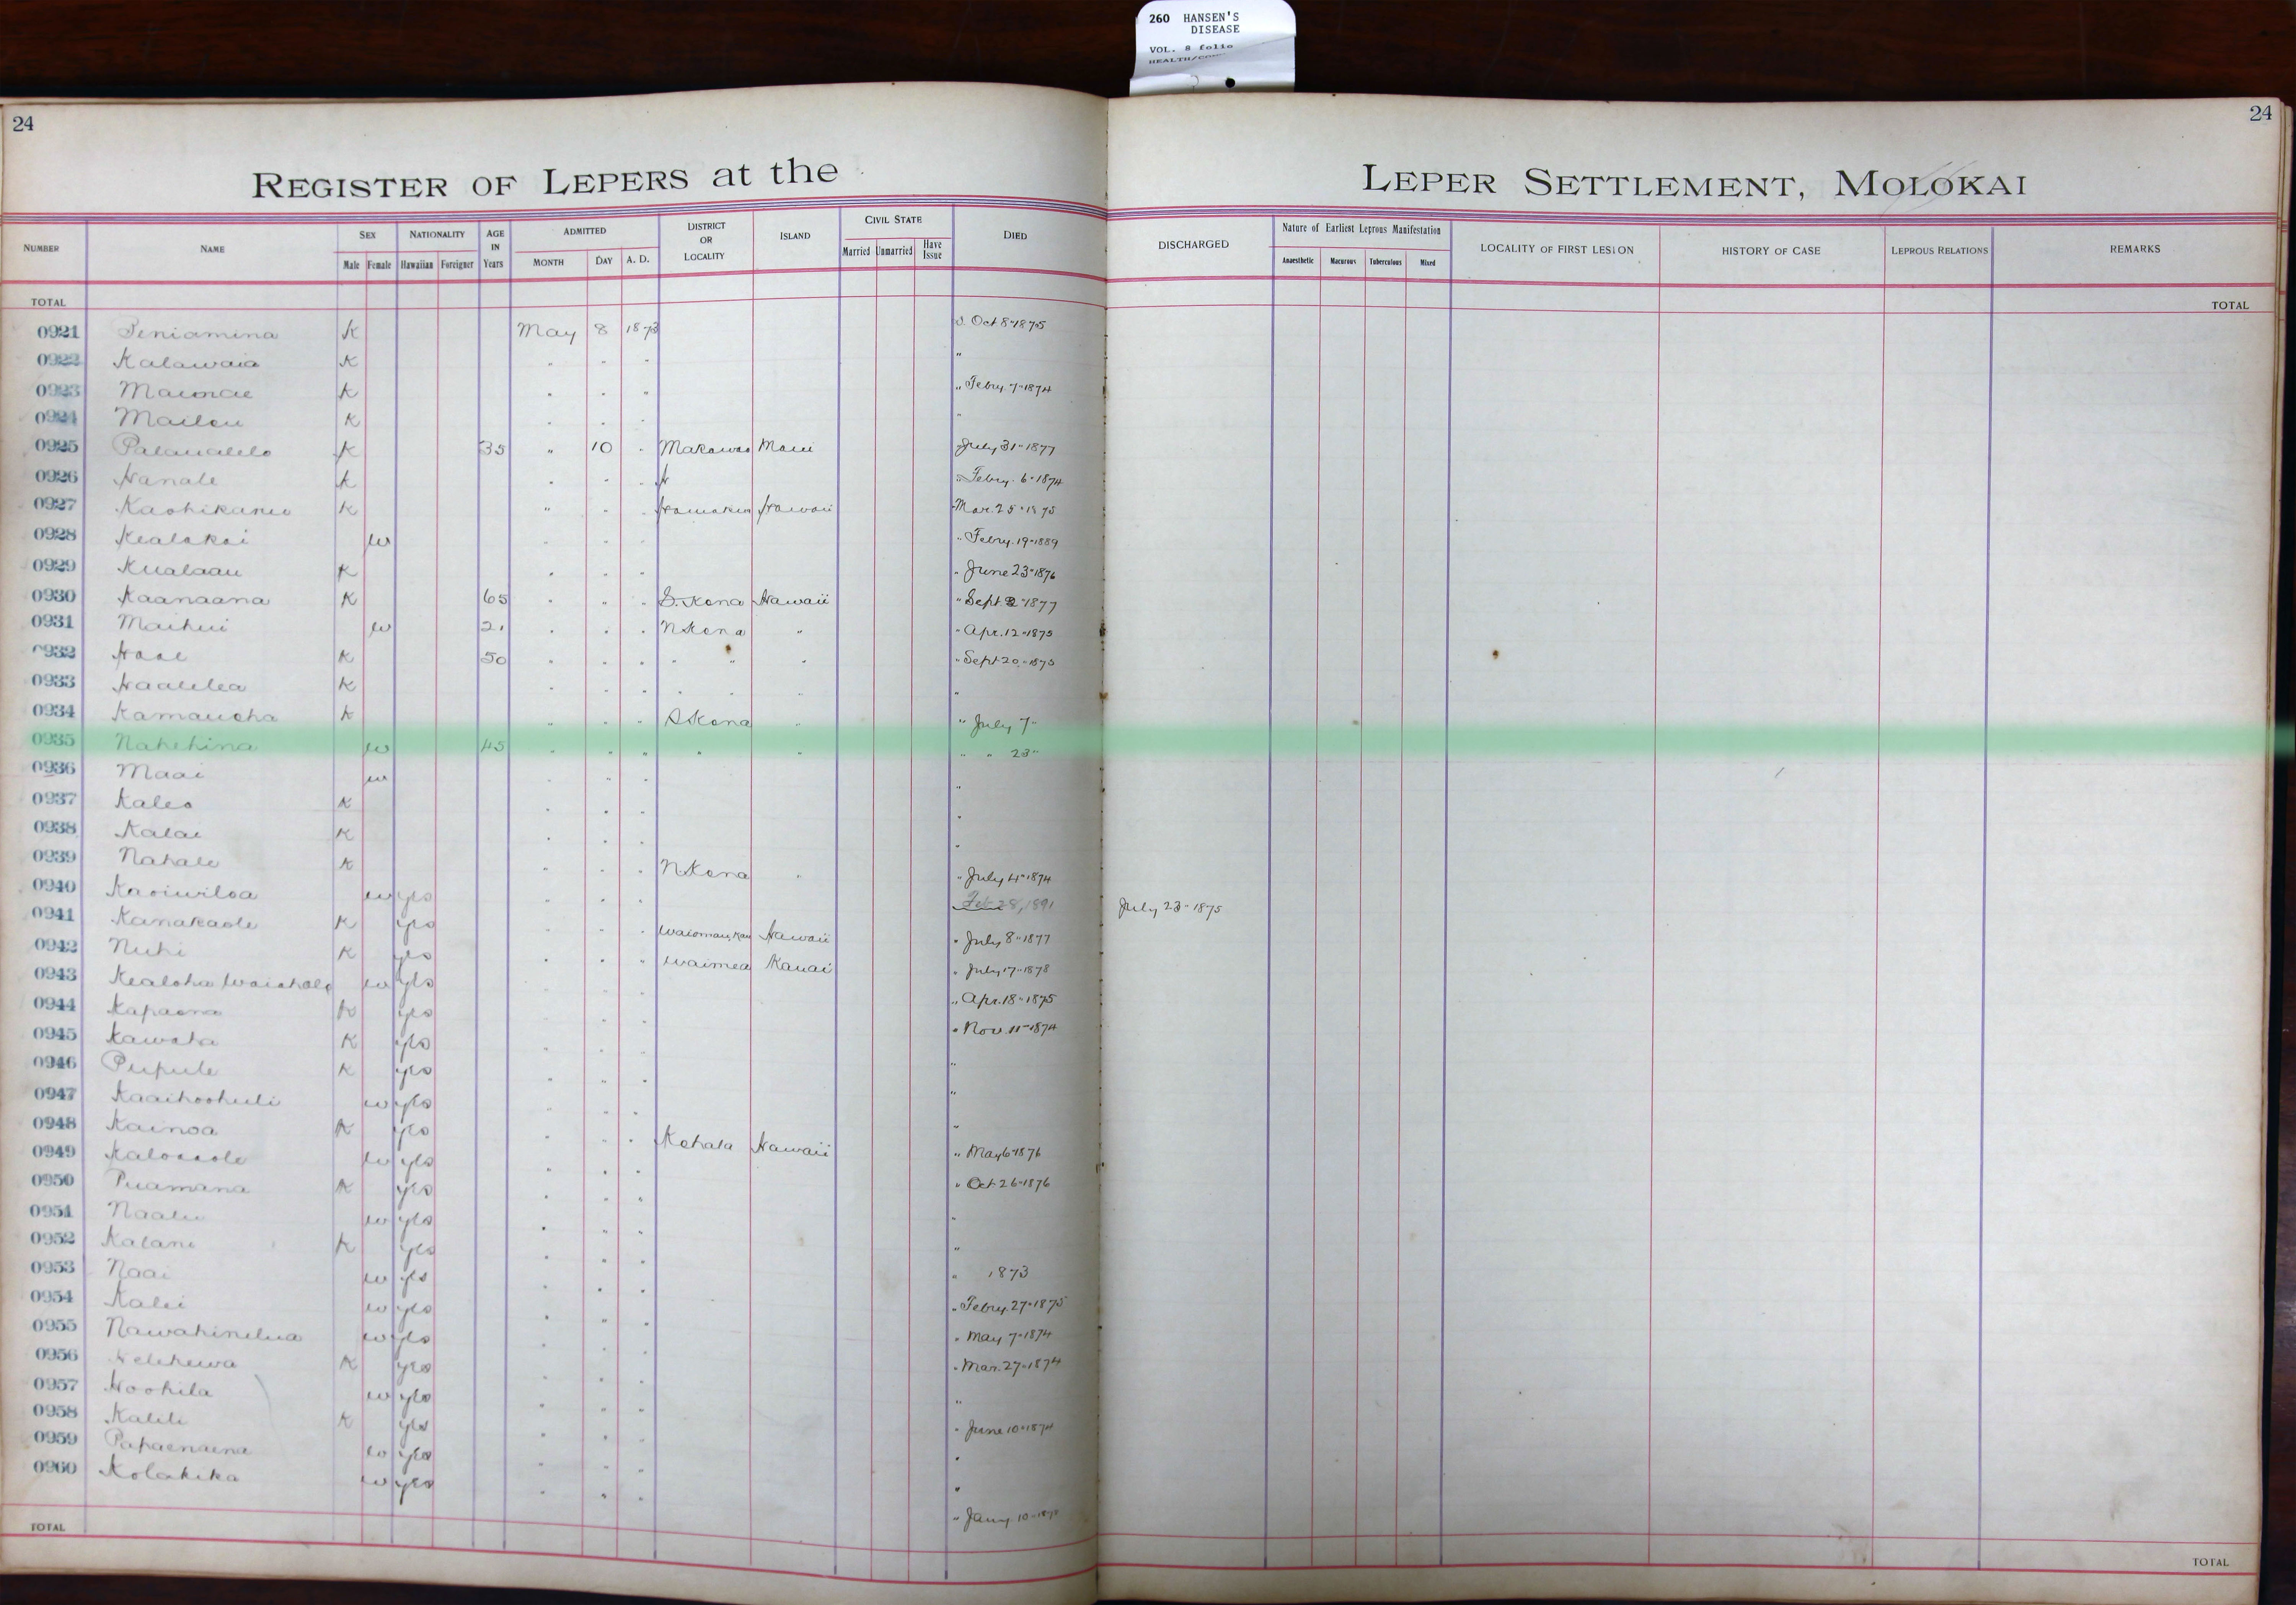 260 HANSEN'S
DISEASE
VOL. 8 folio
24
24
REGISTER OF LEPERS at the LEPER SETTLEMENT, MOLOKAI
NUMBER NAME SEX Male Female NATIONALITY Hawaiian Foreigner AGE IN Years ADMITTED MONTH DAY A. D. DISTRICT OR LOCALITY ISLAND CIVIL STATE Married Unmarried Have Issue DIED DISCHARGED Nature of Earliest Leprous Manifestation Anaesthetic Macurous Tuberculous Mixed LOCALITY OF FIRST LESION HISTORY OF CASE LEPROUS RELATIONS REMARKS
TOTAL TOTAL
0921 Peniamina K May 8 1873 Oct 8" 1875
0922 Kalawaia K " " " "
0923 K " " " " Febry. 7" 1874
0924 K " " " "
0925 K 35 " 10 " Makawao Maui July 31" 1877
0926 Hanale K " " " " Febry. 6" 1874
0927 K " " " Hamakua Hawaii Mar. 25" 1875
0928 Kealakai w " " " " Febry. 19" 1889
0929 Kualaau K " " " " June 23" 1876
0930 Kaanaana K 65 " " " S. Kona Hawaii " Sept 2" 1877
0931 Maihui w 21 " " " N Kona " " Apr. 12" 1875
0932 K 50 " " " " " " " Sept 20" 1875
0933 Haalelea K " " " " " " "
0934 Kamauoha K " " " S Kona " " July 7"
0935 Nahehina w 45 " " " " " " " 23"
0936 Maai w " " " "
0937 Kaleo K " " " "
0938 Kalai K " " " "
0939 Nahale K " " " N Kona " " July 4" 1874
0940 Kaoiwiloa w yes " " " Feb 28, 1891 July 23" 1875
0941 Kanakaole K yes " " " Hawaii " July 8" 1877
0942 Nuhi K yes " " " Waimea Kauai " July 17" 1878
0943 Kealoha w yes " " " " Apr. 18" 1875
0944 Kapaona K yes " " " " Nov. 11" 1874
0945 Kawaha K yes " " " "
0946 Pupule K yes " " " "
0947 Kaaihoohuli w yes " " " "
0948 Kainoa K yes " " " Kohala Hawaii " May 6" 1876
0949 w yes " " " " Oct 26" 1876
0950 Puamana K yes " " " "
0951 w yes " " " "
0952 Kalani K yes " " " " 1873
0953 Naai w yes " " " " Febry. 27" 1875
0954 Kalei w yes " " " " May 7" 1874
0955 Nawahinelua w yes " " " " Mar. 27" 1874
0956 K yes " " " "
0957 Hoohila w yes " " " " June 10" 1874
0958 Kalili K yes " " " "
0959 Papaenaena w yes " " " "
0960 Kolakika w yes " " " " Jany. 10"
TOTAL TOTAL